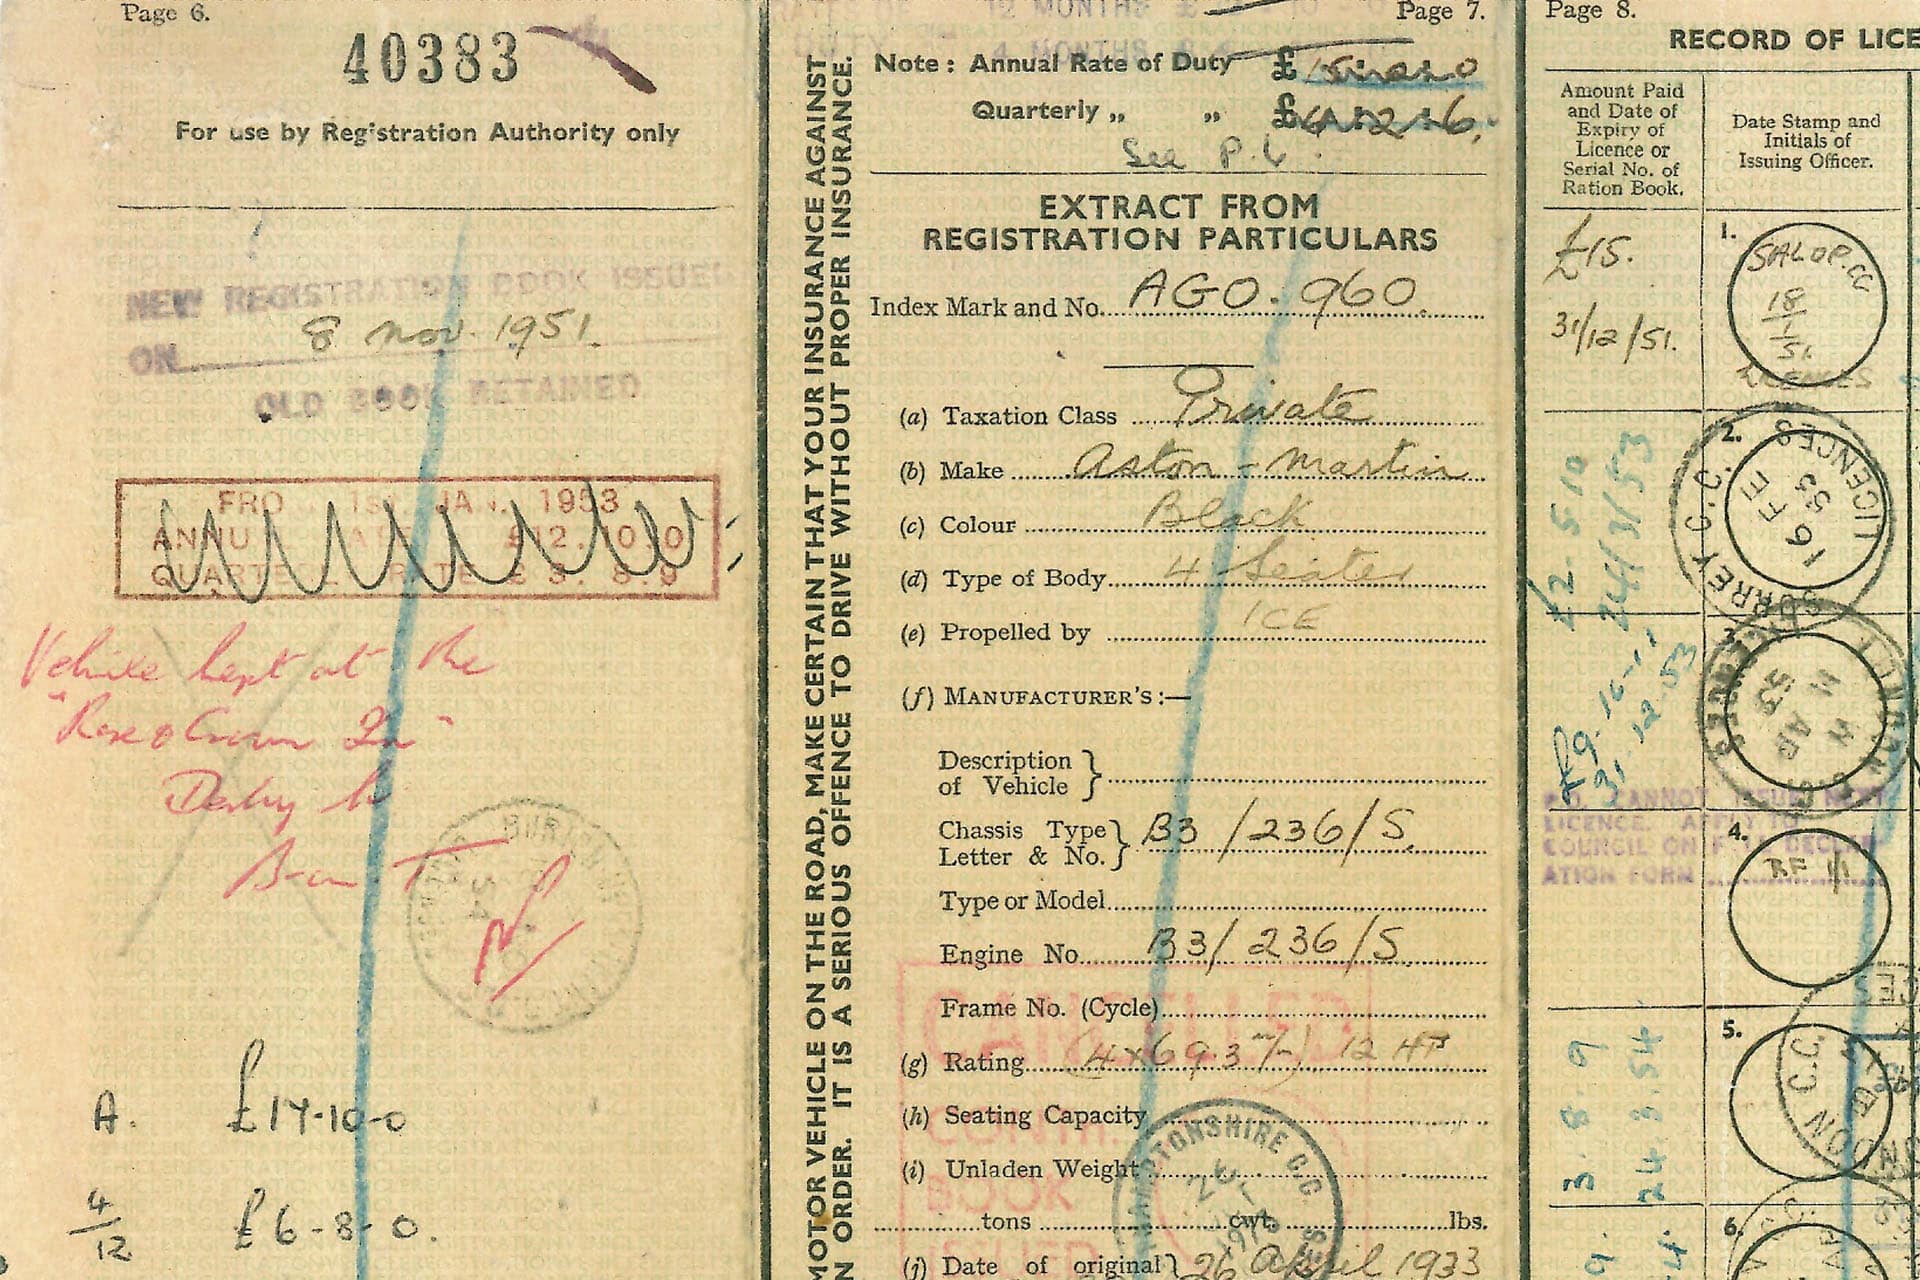 Page 6.
40383
For use by Registration Authority only
NEW REGISTRATION BOOK ISSUED
8 Nov. 1951.
ON
OLD BOOK RETAINED
FRO 1st JAN. 1953
ANNU £12.10.0
QUARTE RATE £3.8.9
Vehicle kept at the
"Rose & Crown In"
Derby
BURTON
A. £17-10-0
4/12 £6-8-0.
MOTOR VEHICLE ON THE ROAD, MAKE CERTAIN THAT YOUR INSURANCE AGAINST
N ORDER. IT IS A SERIOUS OFFENCE TO DRIVE WITHOUT PROPER INSURANCE.
12 MONTHS £
4 MONTHS
Page 7.
Note: Annual Rate of Duty £
Quarterly „ „ £
See P. 6.
EXTRACT FROM
REGISTRATION PARTICULARS
Index Mark and No. AGO. 960
(a) Taxation Class Private
(b) Make Aston-Martin
(c) Colour Black
(d) Type of Body 4 Seater
(e) Propelled by ICE
(f) MANUFACTURER'S:—
Description
of Vehicle
Chassis Type
Letter & No. B3/236/S.
Type or Model
Engine No. B3/236/S.
Frame No. (Cycle)
CANCELLED
(g) Rating (4x69.3 m/m) 12 HP
(h) Seating Capacity
CONTN.
(i) Unladen Weight
BOOK
tons cwt. lbs.
ISSUED
(j) Date of original 26 April 1933
Page 8.
RECORD OF LICE
Amount Paid
and Date of
Expiry of
Licence or
Serial No. of
Ration Book.
Date Stamp and
Initials of
Issuing Officer.
£15.
31/12/51.
1.
SALOP.CC
18
1
51.
LICENCES
£2.5.10
24/3/53
2.
SURREY C.C.
LICENCES
16 FE
53
31.12.53
3.
AP
53
P.O. CANNOT ISSUE NEXT
LICENCE. APPLY TO
COUNCIL ON FULL DECLAR
ATION FORM
4.
RF 1/1
3.8.9
24.3.54
5.
LONDON C.C.
6.